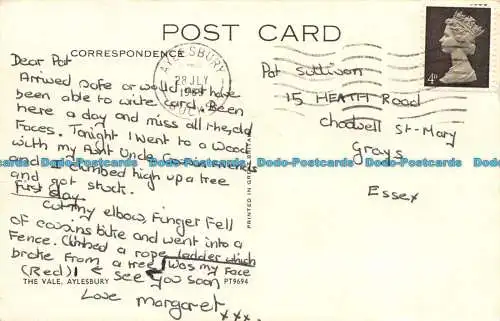 POST CARD
CORRESPONDENCE
AYLESBURY
28 JLY
4D
Dear Pat
Arrived safe or would not have
been able to write card. Been
here a day and miss all the old
Faces. Tonight I went to a Wood
with my Aunt Uncle
and I climbed high up a tree
and got stuck.
First day
Cut my elbow, Funger Fell
of cousins bike and went into a
Fence. Climbed a rope ladder which
broke From a tree, was my Face
(Red)! see you soon
Love margaret xxx.
Pat Sullivan
15 HEATH Road
Chadwell St-Mary
Grays
Essex
PRINTED IN GREAT BRITAIN
THE VALE, AYLESBURY
PT9694
Dodo-Postcards Dodo-Postcards Dodo-Postcards Dodo-Postcards